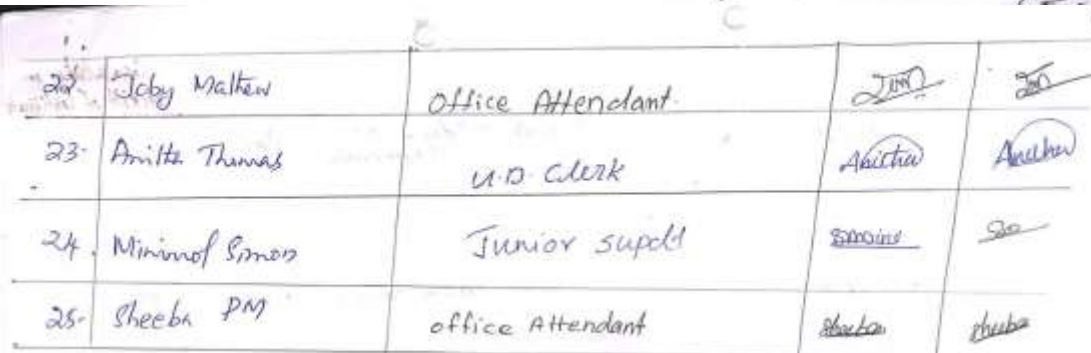 22. Joby Mathew Office Attendant.
23. Anitta Thomas U.D. Clerk
24. Minimol Simon Junior Supdt
25. Sheeba PM Office Attendant Sheeba Sheeba